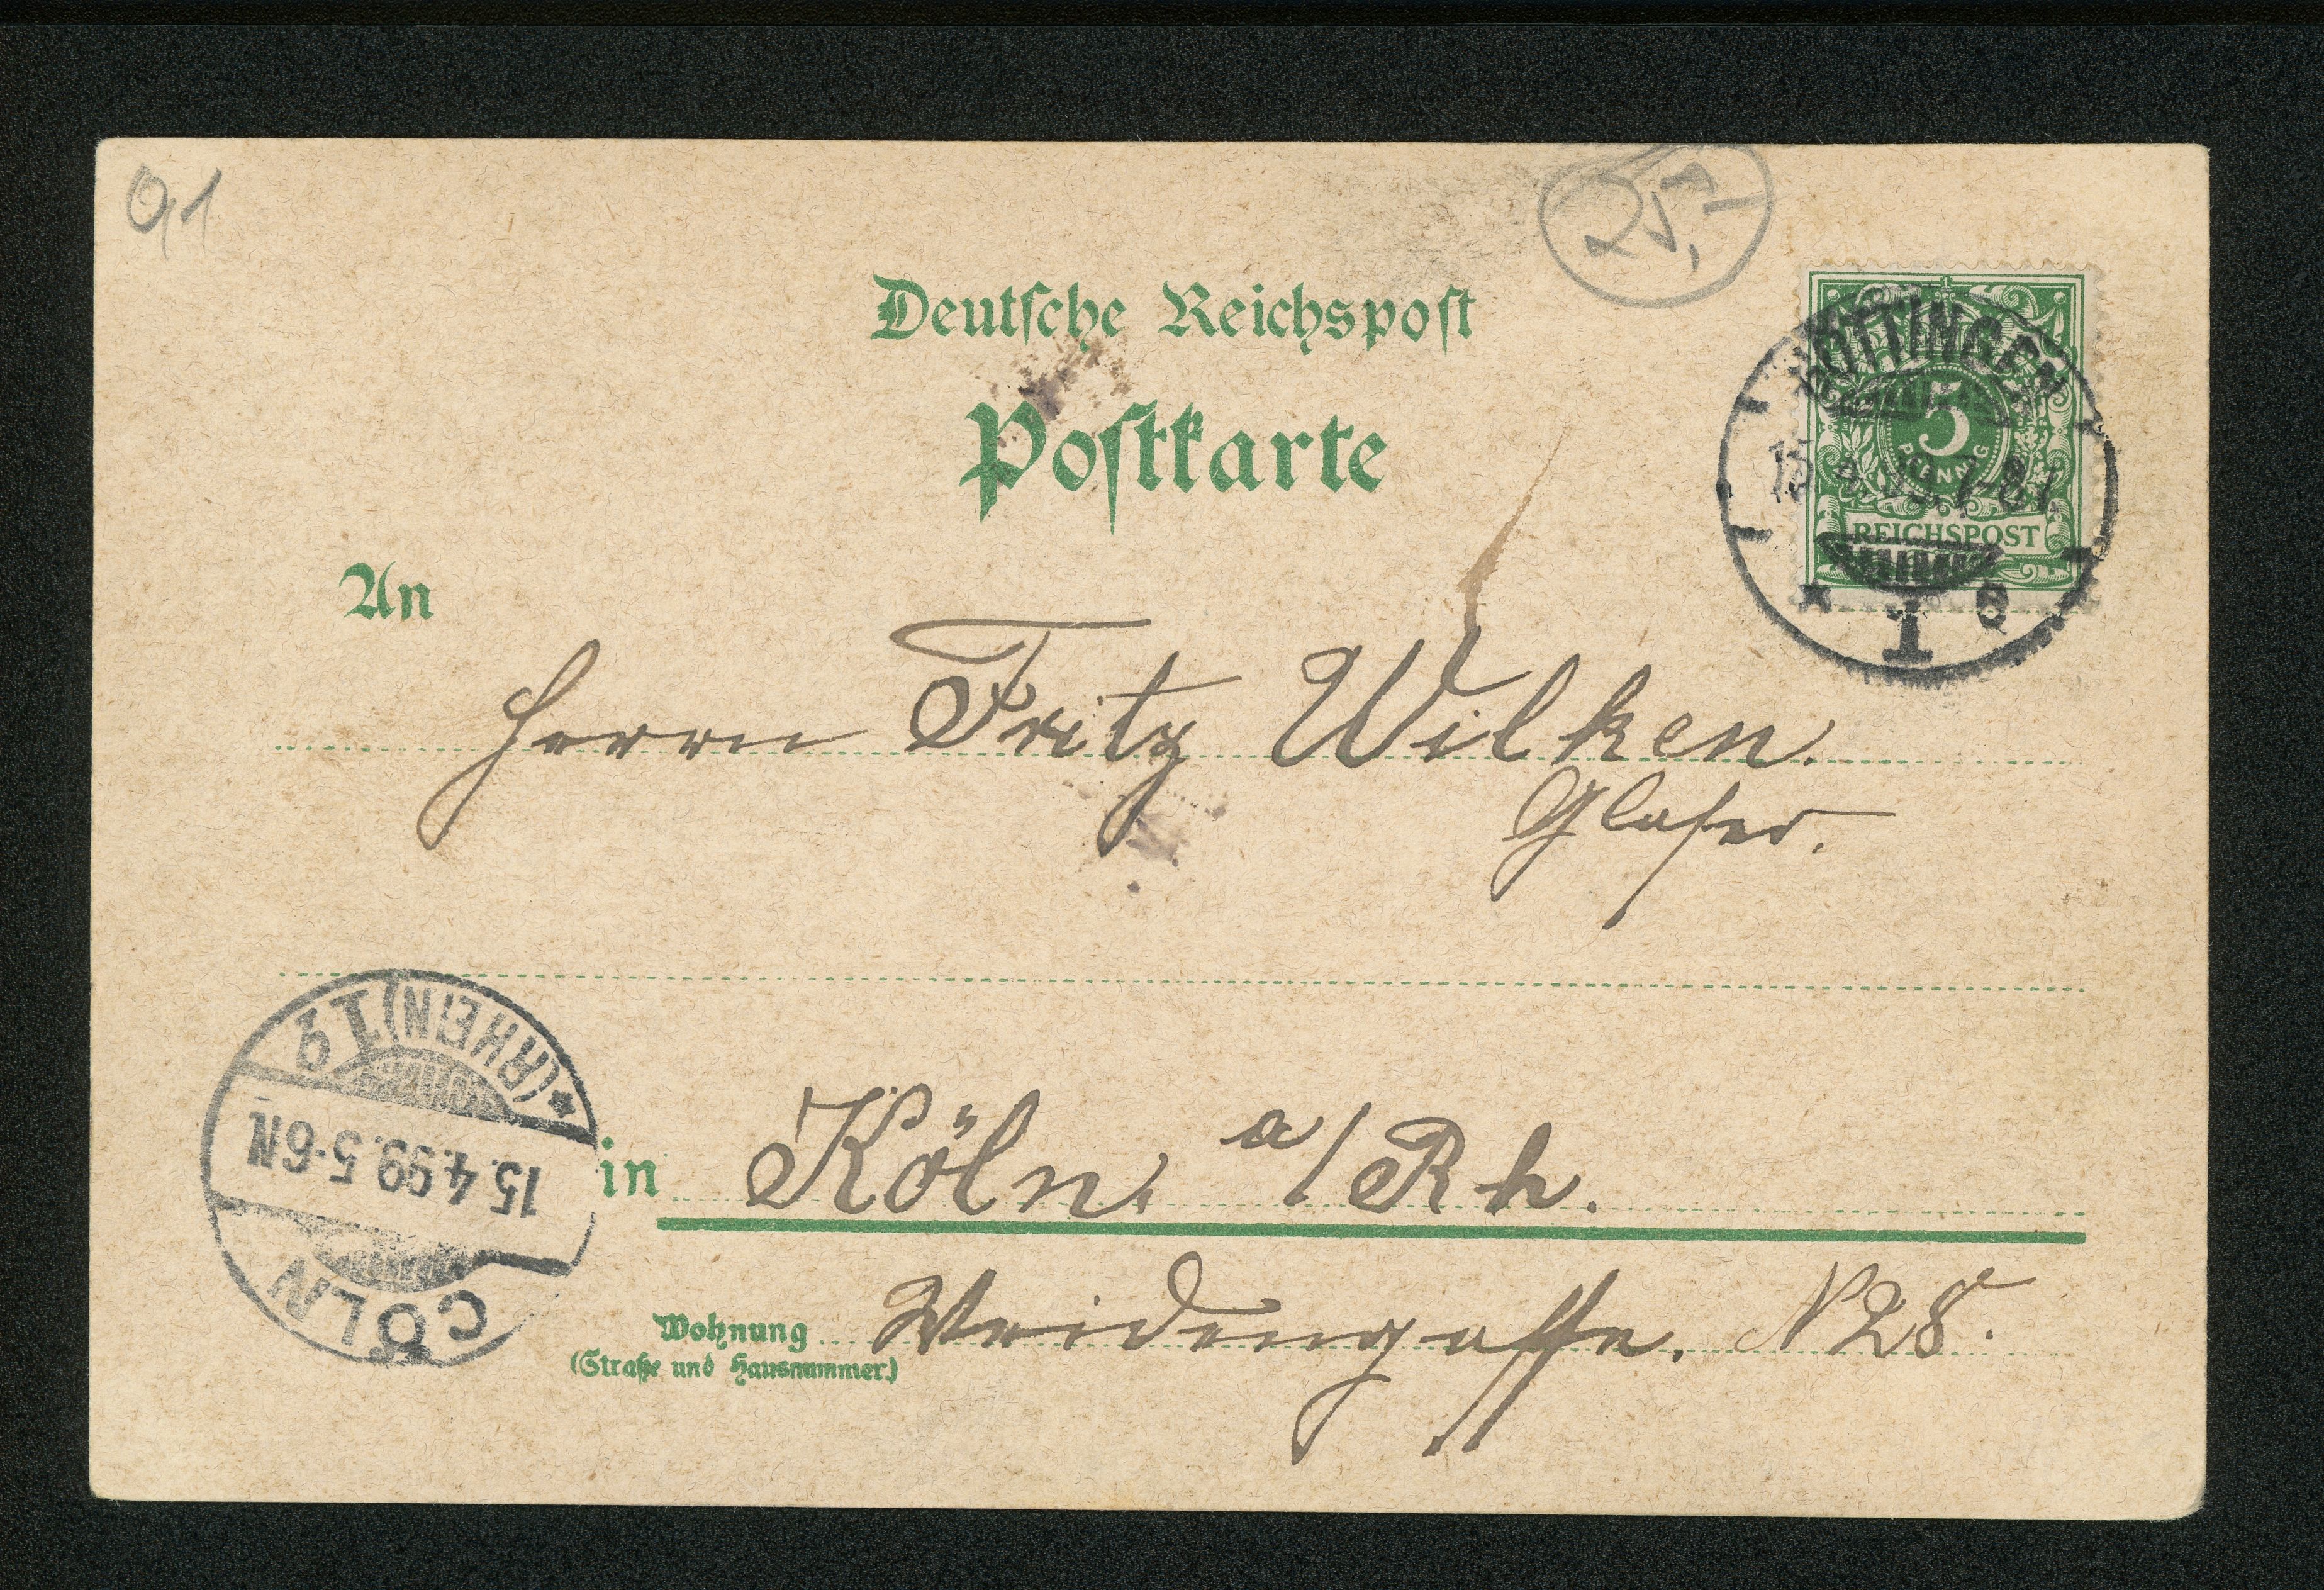 91
25,-
Deutsche Reichspost
Postkarte
GÖTTINGEN
5
PFENNIG
REICHSPOST
7-8V
* 1 B
An
Herrn Fritz Wilken.
Glaser.
CÖLN
15.4.99.5-6N.
*(RHEIN) 1 q
in Köln, a/Rh.
Wohnung Weidengasse. N 28.
(Straße und Hausnummer.)